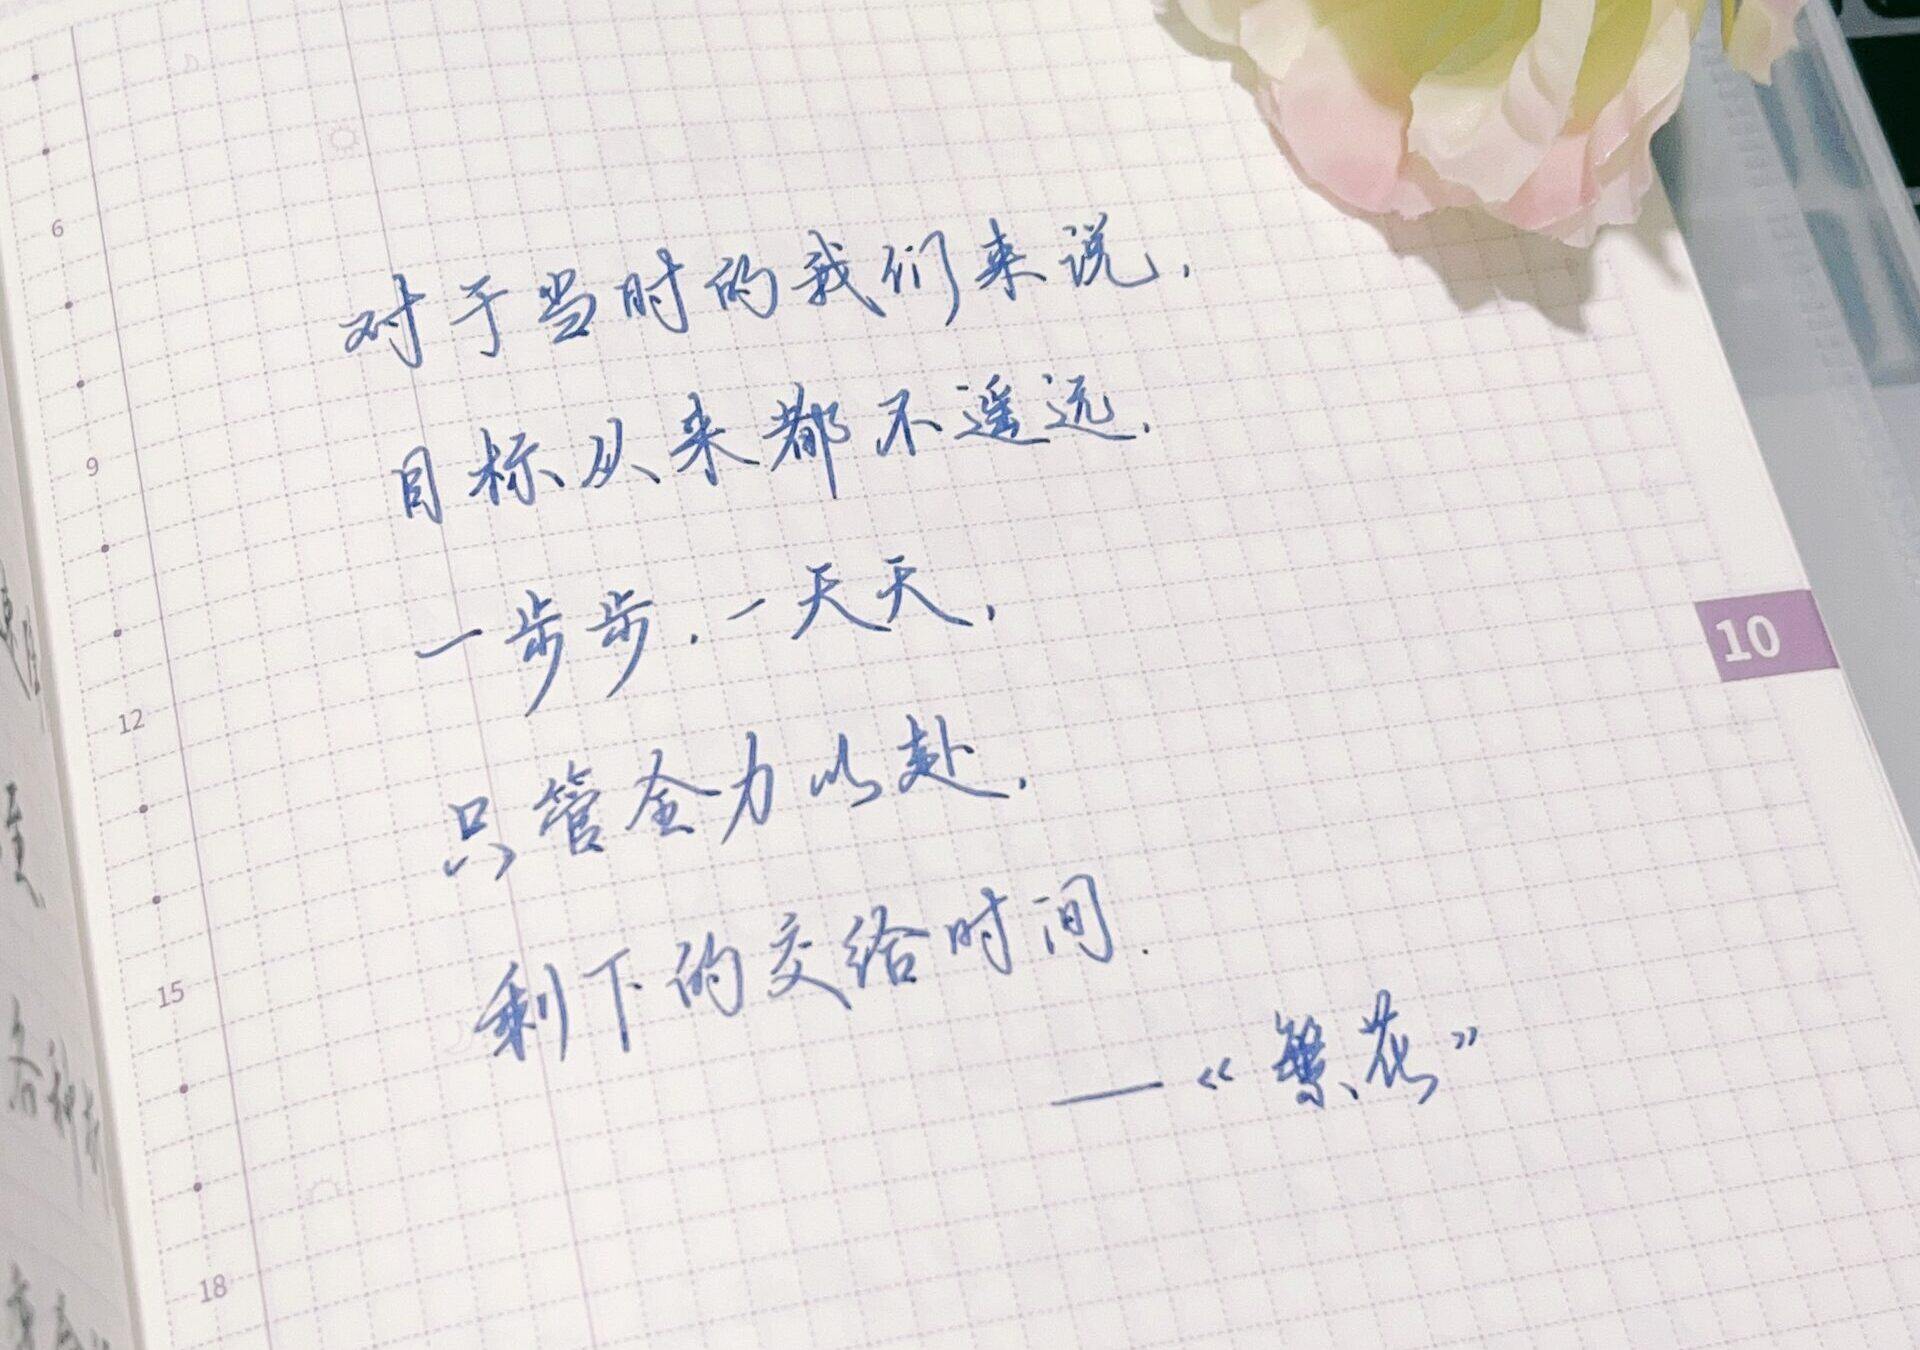 对于当时的我们来说，
目标从来都不遥远，
一步步，一天天，
只管全力以赴，
剩下的交给时间.
——《繁花》
6
9
12
15
18
10